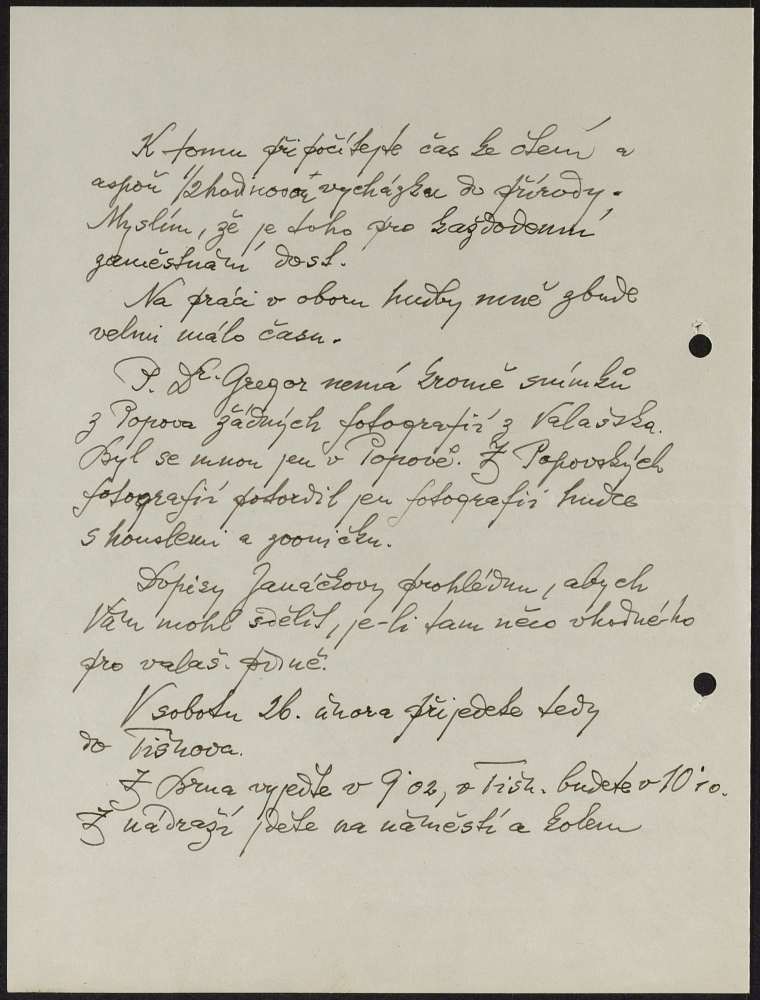 K tomu připočítejte čas ke čtení a
aspoň 1/2hodinovou vycházku do přírody.
Myslím, že je toho pro každodenní
zaměstnání dost.
Na práci v oboru hudby mně zbude
velmi málo času.
P. Dr. Gregor nemá kromě snímků
z Popova žádných fotografií z Valašska.
Byl se mnou jen v Popově. Z Popovských
fotografií potvrdil jen fotografii hudce
s houslemi a zvoničku.
Dopisy Janáčkovy prohlédnu, abych
Vám mohl sdělit, je-li tam něco vhodného
pro valaš. písně.
V sobotu 26. února přijedete tedy
do Tišnova.
Z Brna vyjeďte v 9˙02, v Tišn. budete v 10˙10.
Z nádraží jděte na náměstí a kolem